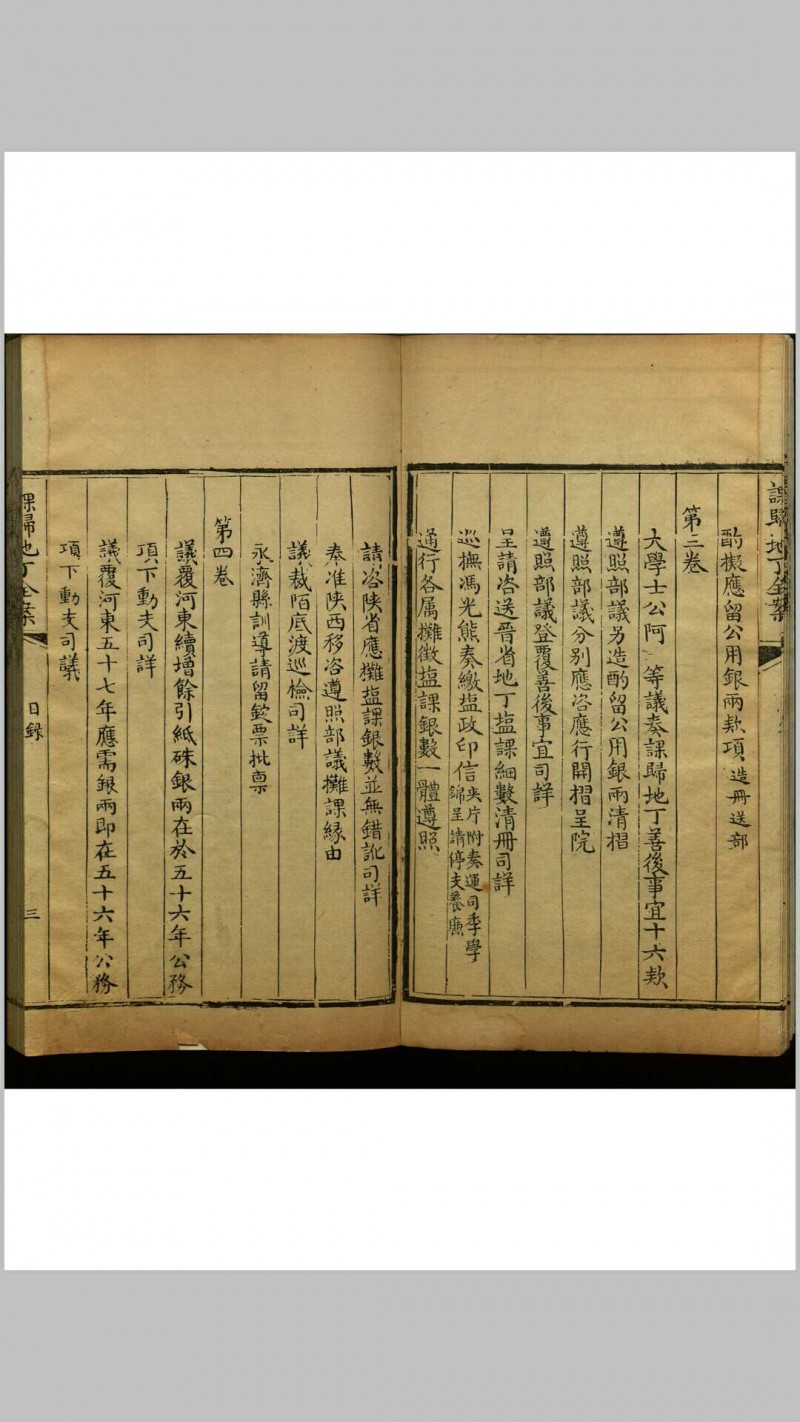 課歸地丁全案
酌擬應留公用銀兩款項造冊送部
第三卷
大學士公阿 等議奏課歸地丁善後事宜十六款
遵照部議另造酌留公用銀兩清摺
遵照部議分别應咨應行開摺呈院
遵照部議登覆善後事宜司詳
呈請咨送晉省地丁塩課細數清冊司詳
巡撫馮光熊奏繳塩政印信夾片附奏運司季學錦呈請停支養廉
通行各属攤徵塩課銀數一體遵照
請咨陝省應攤塩課銀數並無錯訛司詳
奏准陝西移咨遵照部議攤課縁由
議裁陌底渡巡檢司詳
永濟縣訓導請留錠票批禀
第四卷
議覆河東續增餘引紙硃銀兩在於五十六年公務
項下動支司詳
議覆河東五十七年應需銀兩即在五十六年公務
項下動支司議
課歸地丁全案 目録 三